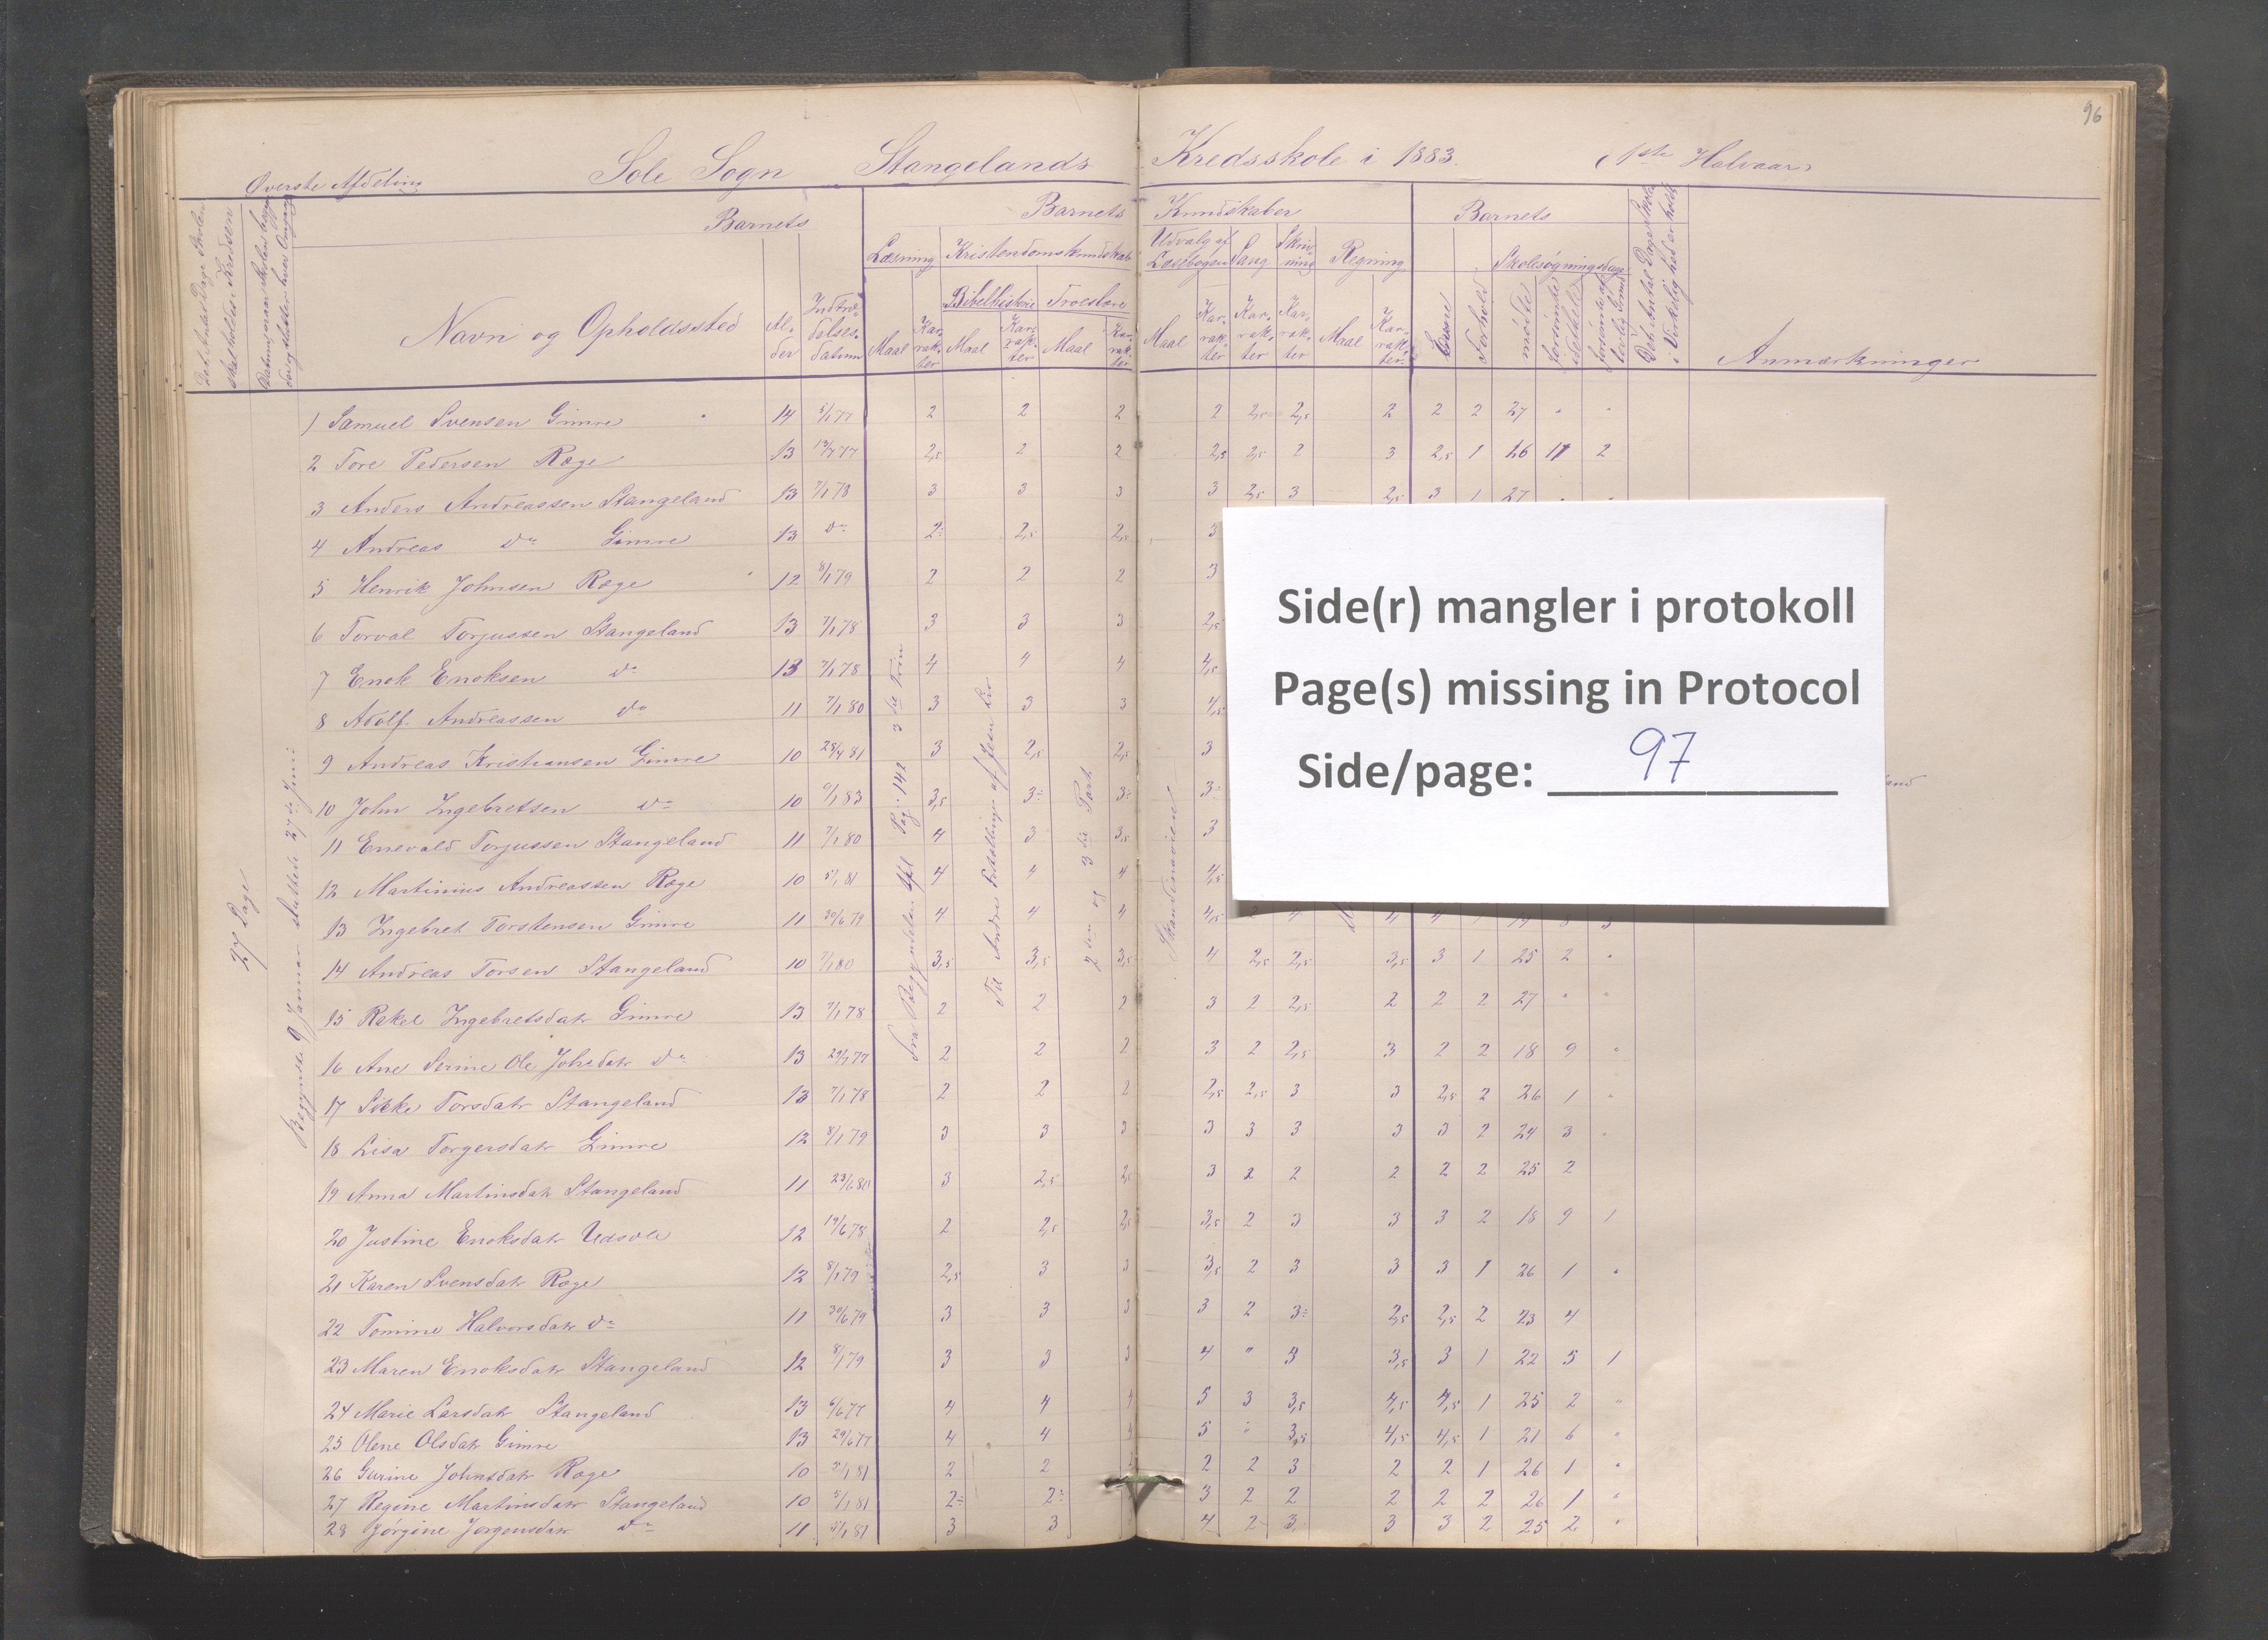 96
Sole Sogn Stangelands Kredsskole i 1883. (1ste Halvaar)
Øverste Afdeling
Barnets
Barnets Kundskaber
Barnets
Læsning Kristendomskundskab Udvalg af Læsebogen Sang Skrivning Regning
Skolesøgningsdage
Bibelhistorie Troeslære
Navn og Opholdssted Alder Indtrædelsesdatum Maal Karakter Maal Karakter Maal Karakter Maal Karakter Karakter Karakter Maal Karakter Evner Forhold mødte forsømte
Anmærkninger
27 Dage
Begyndte 9 Januar sluttede 27de Juni
3die Trin
Pag. 142
2den og 3die Part
Skandinavien
1 Samuel Svensen Gimre 14 5/1 77 2 2 2 2 2,5 2,5 2 2 2 27 " "
2 Tore Pedersen Ræge 13 2,5 2 2 2,5 2,5 2 3 2,5 1 16 11 2
3 Anders Andreassen Stangeland 13 7/1 78 3 3 3 3 2,5 3 2,5 3 1 27 " "
4 Andreas do Gimre 13 do 2÷ 2,5 2,5 3
5 Henrik Johnsen Ræge 12 8/1 79 2 2 2 3
6 Torval Torjussen Stangeland 13 7/1 78 3 3 3 2,5
7 Enok Enoksen do 13 7/1 78 4 4 4 4,5
8 Adolf Andreassen do 11 7/1 80 3 3 3 4,5
9 Andreas Kristiansen Gimre 10 28/4 81 3 2,5 2,5 3
10 John Ingebretsen do 10 9/1 83 3,5 3÷ 3÷ 3÷
11 Enevald Torjussen Stangeland 11 7/1 80 4 3 3,5 3
12 Martinius Andreassen Ræge 10 5/1 81 4 4 4 4,5
13 Ingebret Torstensen Gimre 11 30/6 79 4 4 4 4,5
14 Andreas Torsen Stangeland 10 7/1 80 3,5 3,5 3,5 4 2,5 2,5 3,5 3 1 25 2 "
15 Rakel Ingebretsdatr Gimre 13 7/1 78 2 2 2 3 2 2,5 2 2 2 27 " "
16 Ane Serine Ole Johsdatr do 13 2 2 2 3 2 2,5 3 2 2 18 9 "
17 Sikke Torsdatr Stangeland 13 7/1 78 2 2 2 2,5 2,5 3 3 2,5 2 26 1 "
18 Lisa Torgersdatr Gimre 12 8/1 79 3 3 3 3 3 3 3 3 2 24 3 "
19 Anna Martinsdatr Stangeland 11 23/6 80 3 2,5 2,5 3 2 2 2 2 2 25 2
20 Justine Enoksdatr Udsole 12 19/6 78 2 2,5 2,5 3,5 2 3 3 3 2 18 9 1
21 Karen Svensdatr Ræge 12 8/1 79 2,5 3 3 3,5 2 3 3 3 1 26 1 "
22 Tomine Halvorsdatr do 11 30/6 79 3 3 3 3 2 3÷ 2,5 2,5 2 23 4
23 Maren Enoksdatr Stangeland 12 8/1 79 3 3 3 4 " 3 3,5 3 1 22 5 1
24 Marie Larsdatr Stangeland 13 6/6 77 4 4 4 5 3 3,5 4,5 4,5 1 25 2 "
25 Olene Olsdatr Gimre 13 29/6 77 4 4 4 5 " 3,5 4,5 4,5 1 21 6 "
26 Gurine Johnsdatr Ræge 10 5/1 81 2 2 2 2 3 2 2 1 26 1 "
27 Regine Martinsdatr Stangeland 10 5/1 81 2÷ 2÷ 3 2 2 2 2 2 26 1 "
28 Jørgine Jørgensdatr do 11 5/1 81 3 3 4 2 3 3 3 2 25 2 "
Side(r) mangler i protokoll
Page(s) missing in Protocol
Side/page: 97